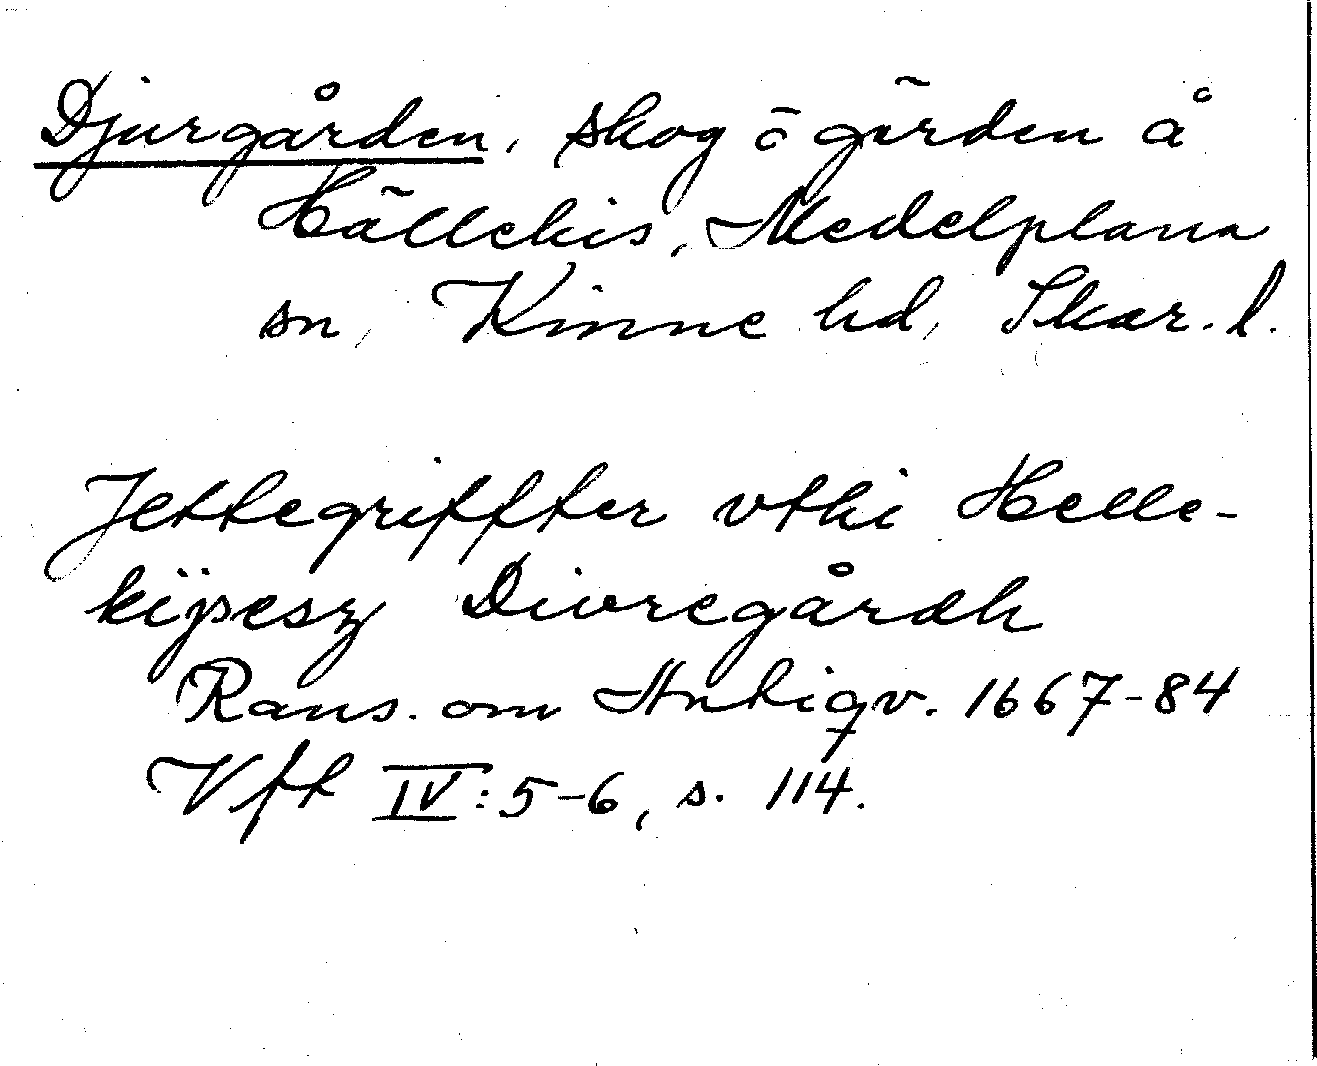 Djurgården, skog o gärden å
Hällekis, Medelplana
sn, Kinne hd, Skar. l.
Jettegriffter vthi Helle-
kijsesz Diuregårdh
Rans. om Antiqv. 1667-84
Vft IV:5-6, s. 114.